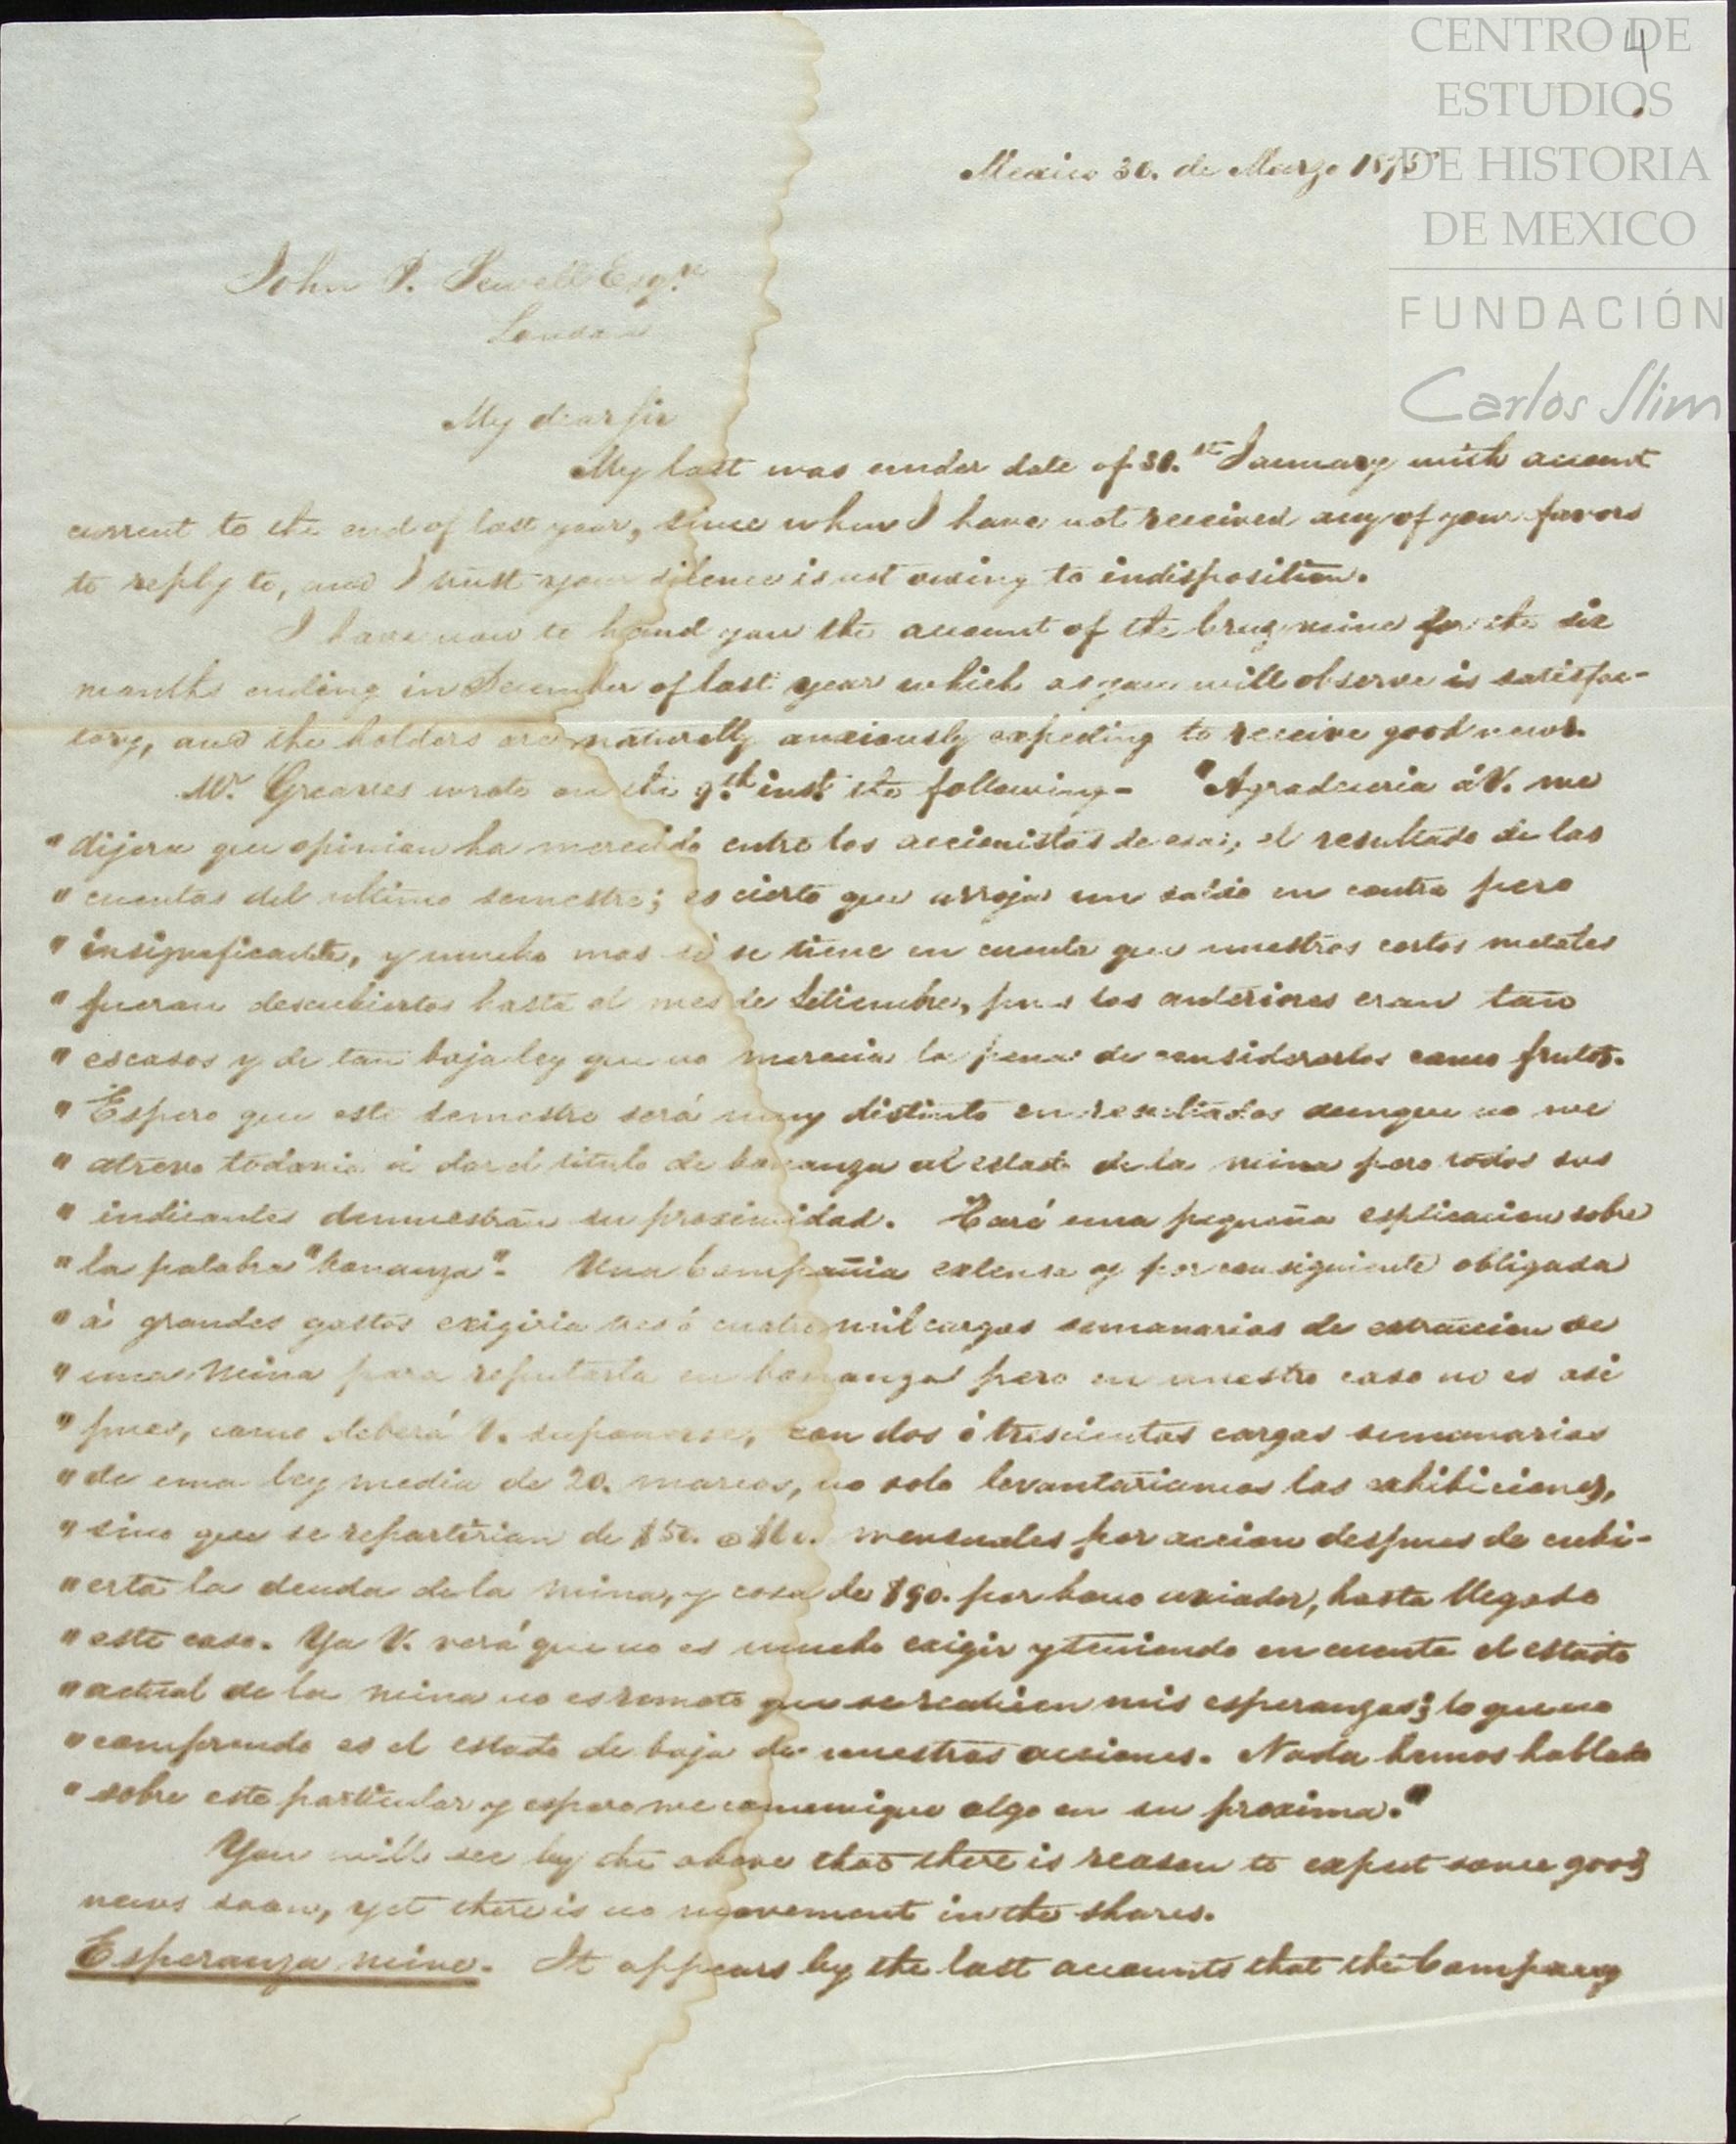 4
CENTRO DE
ESTUDIOS
DE HISTORIA
DE MEXICO
FUNDACIÓN
Carlos Slim
Mexico 30. de Marzo 1875
John P. Sewell Esqre
London
My dear Sir
My last was under date of 30.th January with account
current to the end of last year, since when I have not received any of your favors
to reply to, and I trust your silence is not owing to indisposition.
I have now to hand you the account of the Cruz mine for the six
months ending in December of last year which as you will observe is satisfac-
tory, and the holders are naturally anxiously expecting to receive good news.
Mr. Greaves wrote on the 9.th inst. the following - "Agradeceria á V. me
" dijera que opinion ha merecido entre los accionistas de esa, el resultado de las
" cuentas del ultimo semestre; es cierto que arroja un saldo en contra pero
" insignificante, y mucho mas si se tiene en cuenta que nuestros cortos metales
" fueron descubiertos hasta el mes de Setiembre, pues los anteriores eran tan
" escasos y de tan baja ley que no merecia la pena de considerarlos como frutos.
" Espero que este semestre será muy distinto en resultados aunque no me
" atrevo todavia á dar el titulo de bonanza al estado de la mina pero todos sus
" indicantes demuestran su proximidad. Haré una pequeña esplicacion sobre
" la palabra "bonanza". Una Compañia extensa y por consiguiente obligada
" á grandes gastos exigiria tres ó cuatro mil cargas semanarias de extraccion de
" una Mina para reputarla en bonanza pero en nuestro caso no es asi
" pues, como deberá V. suponerse, con dos ó trescientas cargas semanarias
" de una ley media de 20. marcos, no solo levantariamos las exhibiciones,
" sino que se repartirian de $50. a mensuales por accion despues de cubi-
" erta la deuda de la mina, y cosa de $90. por bono aviador, hasta llegado
" este caso. Ya V. verá que no es mucho exigir y teniendo en cuenta el estado
" actual de la mina no es remoto que se realicen mis esperanzas; lo que no
" comprendo es el estado de baja de nuestras acciones. Nada hemos hablado
" sobre este particular y espero me comunique algo en su proxima."
You will see by the above that there is reason to expect some good
news soon, yet there is no movement in the shares.
Esperanza mine. It appears by the last accounts that the Company